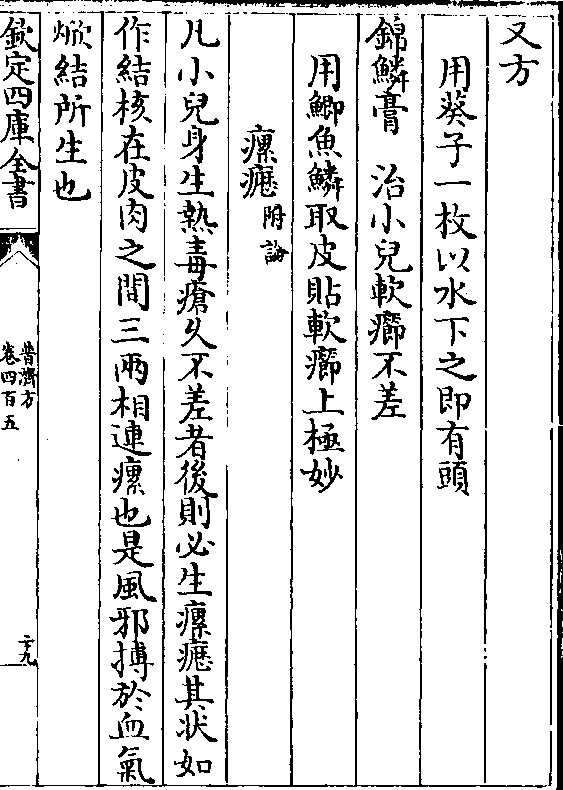 又方
用葵子一枚以水下之即有頭
錦鱗膏　治小兒軟癤不差
用鯽魚鱗取皮貼軟癤上極妙
瘰癧附論
凡小兒身生熱毒瘡久不差者後則必生瘰癧其状如
作結核在皮肉之間三兩相連瘰也是風邪搏於血氣
焮結所生也
欽定四庫全書
普濟方
卷四百五
二十九